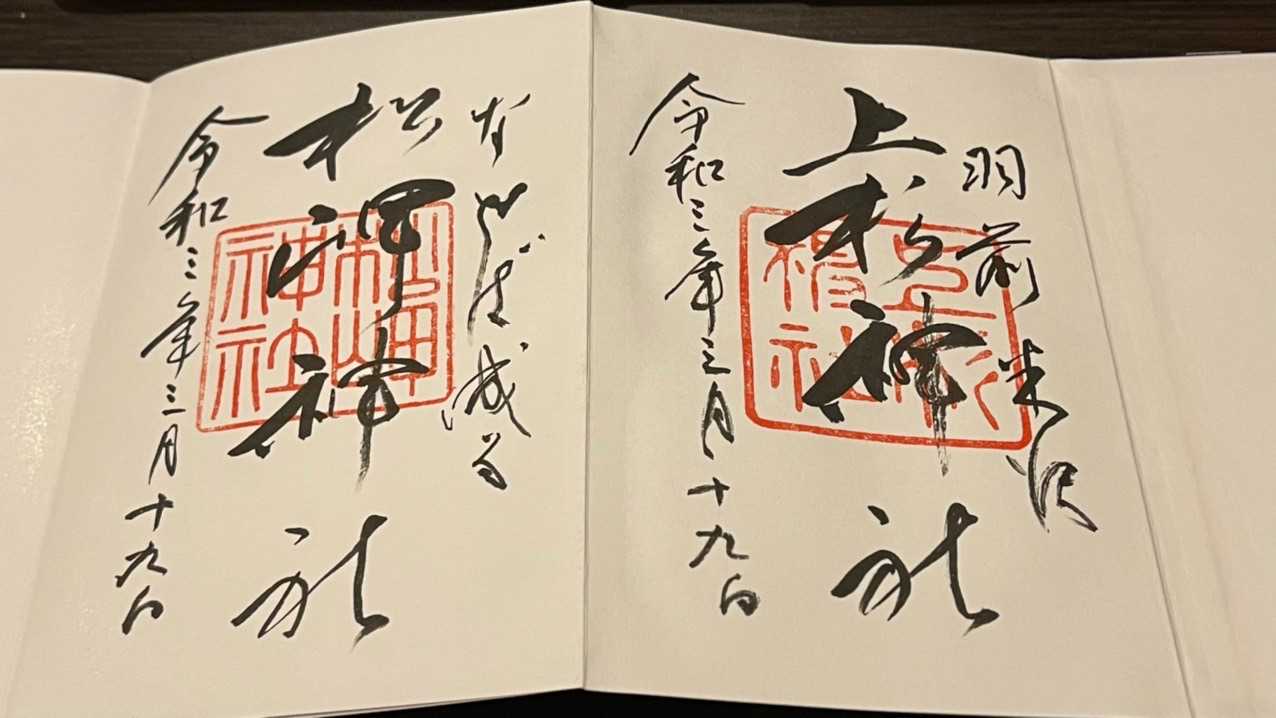 羽前米沢
上杉神社
上杉神社
令和三年三月十九日
なせば成る
松岬神社
松岬神社
令和三年三月十九日